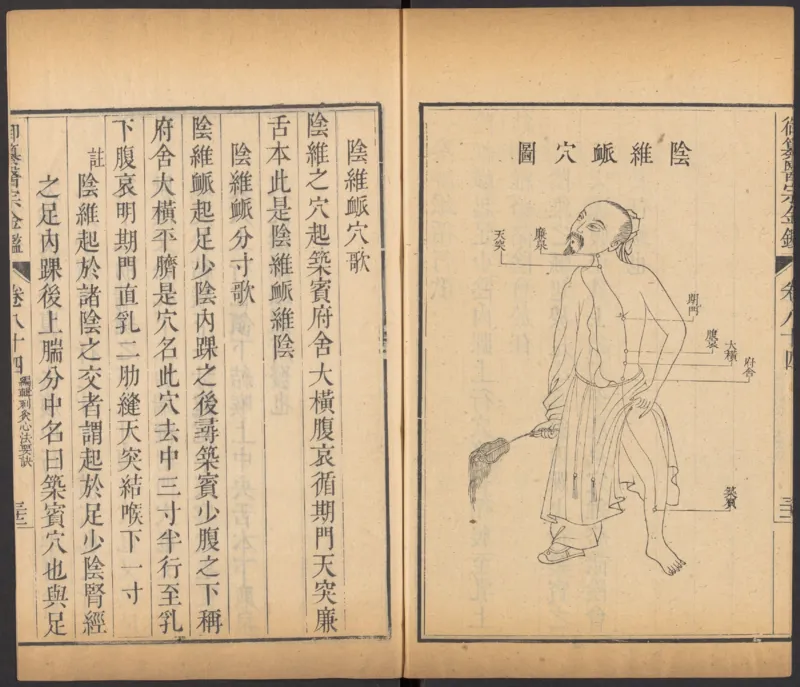 陰維脈穴圖
廉泉
天突
期門
腹哀
大橫
府舍
築賓
御纂醫宗金鑑
卷八十四
陰維脈穴歌
陰維之穴起築賓府舍大橫腹哀循期門天突廉
舌本此是陰維脈維陰
陰維脈分寸歌
陰維脈起足少陰內踝之後尋築賓少腹之下稱
府舍大橫平臍是穴名此穴去中三寸半行至乳
下腹哀明期門直乳二肋縫天突結喉下一寸
註陰維起於諸陰之交者謂起於足少陰腎經
之足內踝後上腨分中名曰築賓穴也與足
御纂醫宗金鑑
卷八十四
編輯刺灸心法要訣